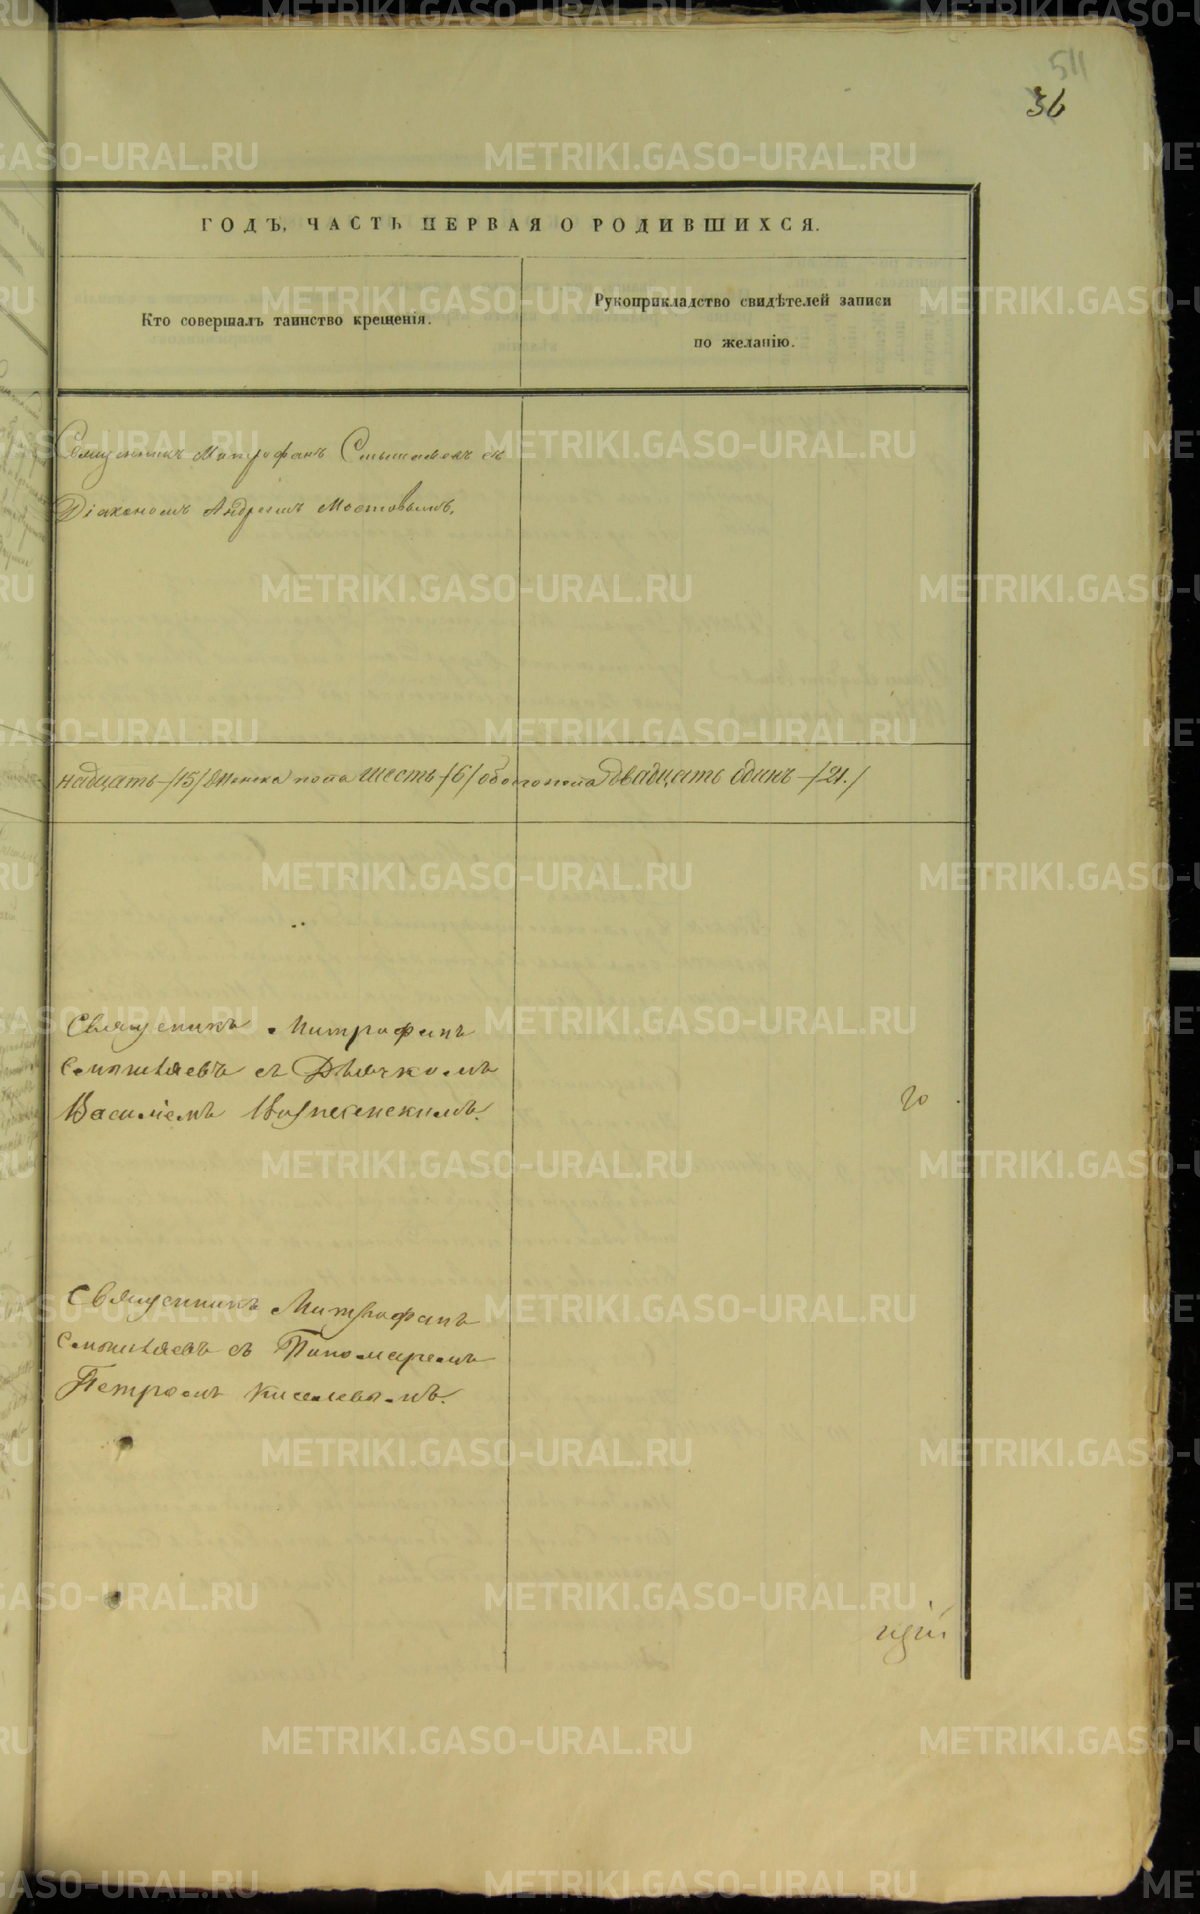 511
36
ГОДЪ, ЧАСТЬ ПЕРВАЯ О РОДИВШИХСЯ.
Кто совершалъ таинство крещенія.
Рукоприкладство свидѣтелей записи
по желанію.
Священникъ Митрофанъ съ
Діакономъ Андреемъ Мостовымъ.
надцать /15/ Женска пола шесть /6/ обоего пола двадцать одинъ /21./
Священникъ Митрофанъ
съ Дьячкомъ
Василіемъ Вознесенскимъ.
Священникъ Митрофанъ
съ Пономаремъ
Петромъ Киселевымъ.
METRIKI.GASO-URAL.RU